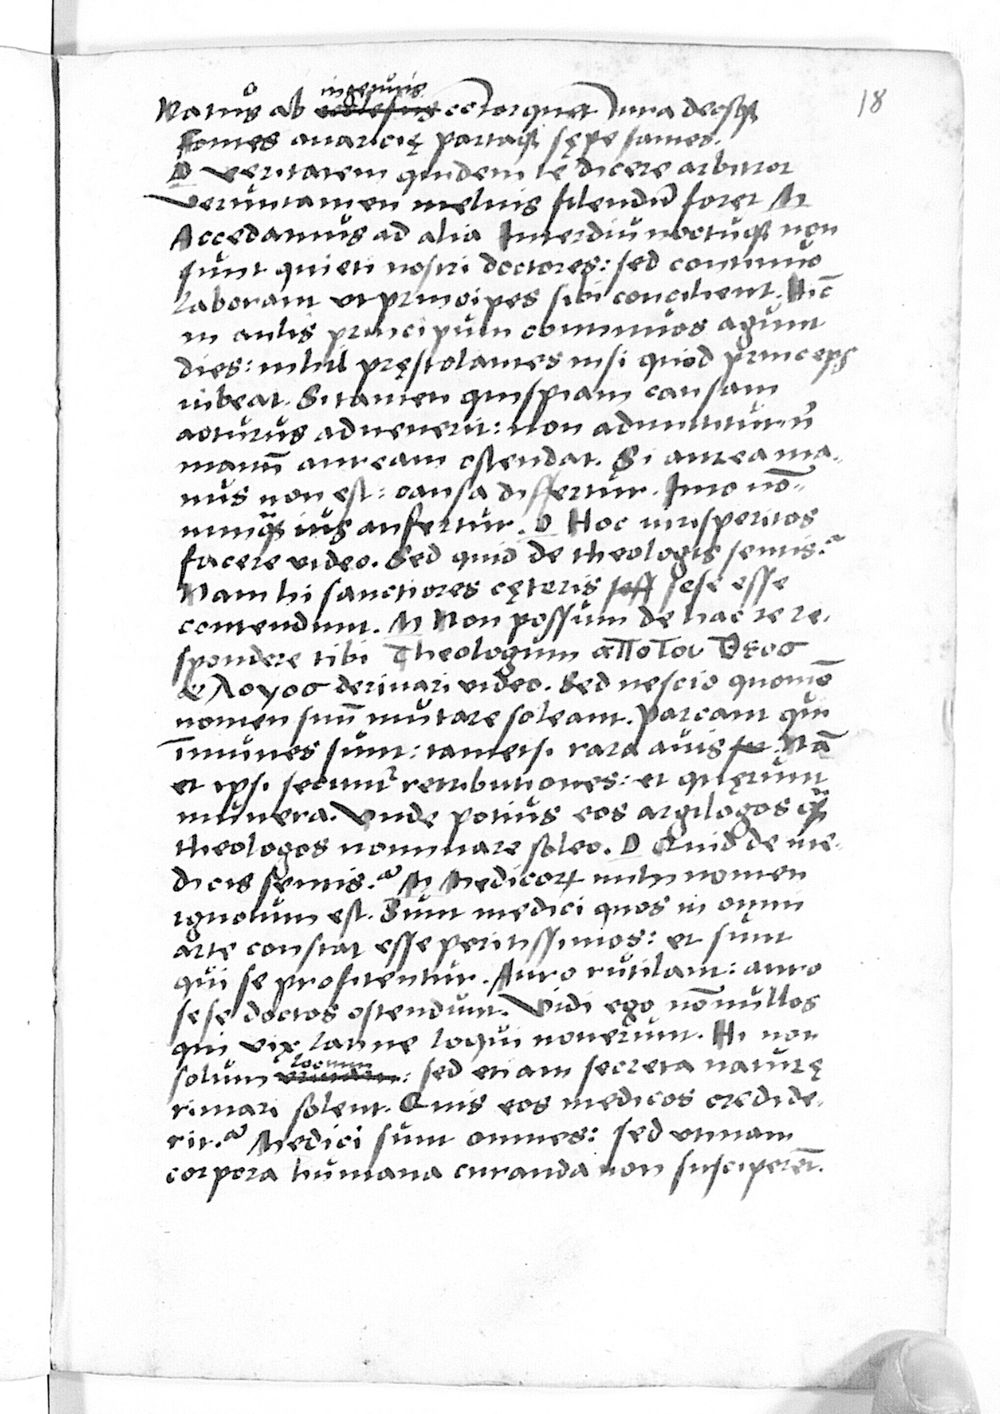 18
Natus ab ingenuis contorquet iura deosque
Fomes avaricię partaque sępe fames.
D veritatem quidem te dicere arbitror
Veruntamen melius silendū foret M
Accedamus ad alia Interdiu noctuque non
sunt quieti nostri doctores: sed continuo
laborant ut principes sibi concilient. Hīc
in aulis principum continuos agunt
dies: nihil pręstolantes nisi quod princeps
iubeat. Si tamen quispiam causam
acturus advenerit: non admittitur ni
manū auream ostendat. Si aurea ma-
nus non est: causa differtur. Imo nō-
nunquam ius aufertur. D Hoc iurisperitos
facere video. Sed quid de theologis sentis?
Nam hi sanctiores cęteris sese esse
contendunt. M Non possum de hac re re-
spondere tibi Theologum ἀπο του Θεος
& λογος derivari video. Sed nescio quomō
nomen suū mutare soleant. Parcant qui
īmunes sunt: tametsi rara avis. Nā
et ipsi secuntur retributiones: et quęrunt
munera. Unde potius eos argilogos quam
theologos nominare soleo. D Quid de me-
dicis sentis? M Medicorum mihi nomen
ignotum est. Sunt medici quos in omni
arte constat esse peritissimos: et sunt
qui se profitentur. Auro rutilant: auro
sese doctos ostendunt. Vidi ego nōnullos
qui vix latine loqui noverunt. Hi non
solum locum: sed etiam secreta naturę
rimari solent. Quis eos medicos credide-
rit? Medici sunt omnes: sed utinam
corpora humana curanda non susciperēt.